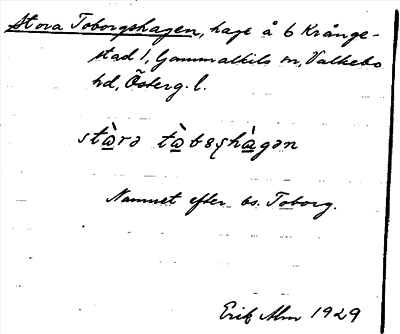 Stora Toborgshagen, hage å 6 Krånge-
stad 1, Gammalkils sn, Valkebo
hd, Österg. l.
Namnet efter bs. Toborg.
Erik Alm 1929